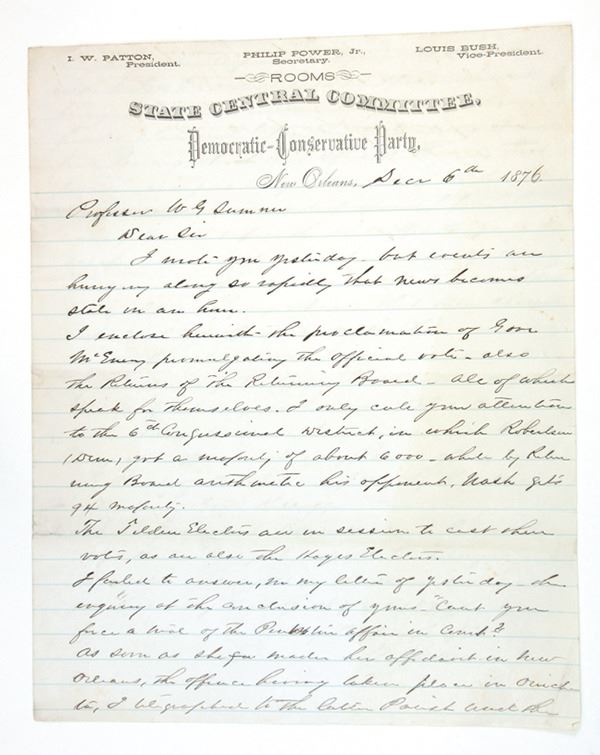 I. W. PATTON,
President.
PHILIP POWER, Jr.,
Secretary.
LOUIS BUSH,
Vice-President.
ROOMS
STATE CENTRAL COMMITTEE,
Democratic-Conservative Party,
New Orleans, Decr 6th 1876.
Professor W G Sumner
Dear Sir
I wrote you yesterday but events are
hurrying along so rapidly that news becomes
stale in an hour.
I enclose herewith the proclamation of Govr
McEnery promulgating the official vote - also
the Returns of the Returning Board - All of which
speak for themselves. I only call your attention
to the 6th Congressional District, in which Robertson
(Dem) got a majority of about 6000 - while by Retur
ning Board arithmetic his opponent, Nash gets
94 majority.
The Tilden Electors are in session to cast their
votes, as are also the Hayes Electors.
I failed to answer, in my letter of yesterday - the
enquiry at the conclusion of yours - "Can't you
force a trial of the affair in Court?"
As soon as she made her affidavit in New
Orleans, the offence having taken place in Ouachi
ta, I telegraphed to the latter Parish and the